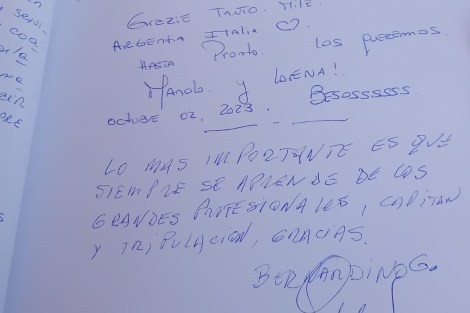 SERVI-
COA
GRZZIE TANTO. MILE.
ARGENTIA ITALIA ♡.
HASTA PRONTO. LOS QUEREMOS
MANOLO. Y LORENA!
OCTUBE 02, 2023. BESOSSSSSS
LO MAS IMPORTANTE ES QUE
SIEMPRE SE APRENDE DE LOS
GRANDES PROFESIONALES, CAPITAN
Y TRIPULACION, GRACIAS.
BERNARDINO G.